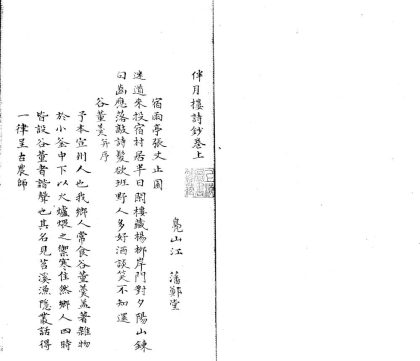 伴月樓詩鈔卷上
鳧山江藩鄭堂
宿雨亭張丈止園
迷道來投宿村居半日閒樓藏楊柳岸門對夕陽山鍊
句齒應落敲詩髮欲班野人多好酒談笑不知還
谷董羹并序
予本宣州人也我鄉人常食谷董羹蓋著雜物
於小釜中下以火爐煨之禦寒住然鄉人四時
皆設谷董者諧聲也其名見苕溪漁隱叢話得
一律呈古農師